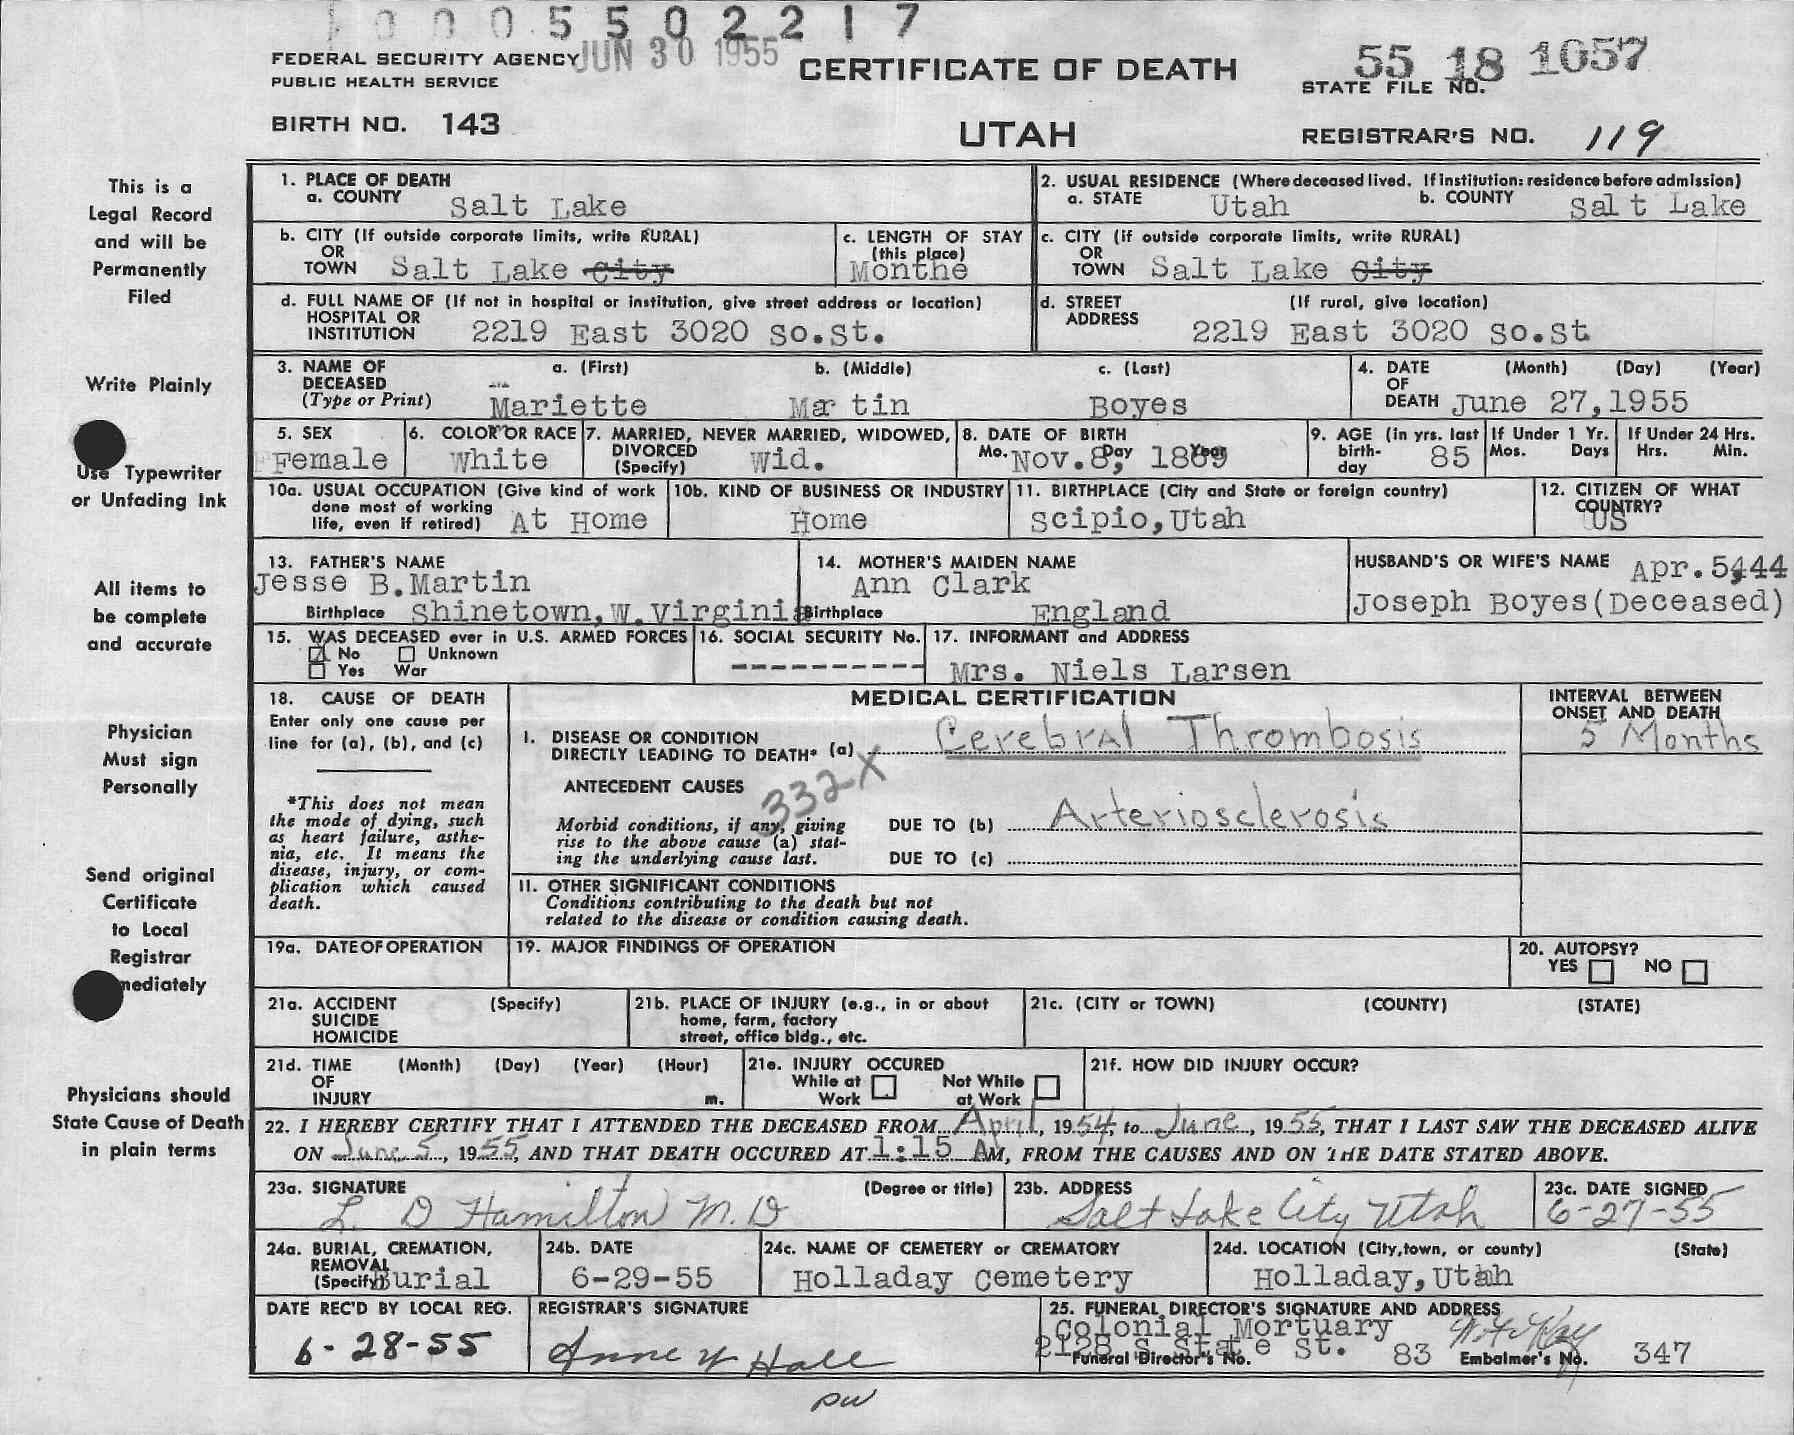 0005502217
FEDERAL SECURITY AGENCY JUN 30 1955 CERTIFICATE OF DEATH 55 18 1057
PUBLIC HEALTH SERVICE STATE FILE NO.
BIRTH NO. 143 UTAH REGISTRAR'S NO. 119
This is a Legal Record and will be Permanently Filed
1. PLACE OF DEATH
a. COUNTY Salt Lake
2. USUAL RESIDENCE (Where deceased lived. If institution: residence before admission)
a. STATE Utah b. COUNTY Salt Lake
b. CITY (If outside corporate limits, write RURAL)
OR
TOWN Salt Lake City
c. LENGTH OF STAY
(this place)
Monthe
c. CITY (if outside corporate limits, write RURAL)
OR
TOWN Salt Lake City
d. FULL NAME OF (If not in hospital or institution, give street address or location)
HOSPITAL OR
INSTITUTION 2219 East 3020 So.St.
d. STREET (If rural, give location)
ADDRESS 2219 East 3020 So.St
Write Plainly
3. NAME OF a. (First) b. (Middle) c. (Last)
DECEASED
(Type or Print) Mariette Martin Boyes
4. DATE (Month) (Day) (Year)
OF
DEATH June 27,1955
Use Typewriter
or Unfading Ink
5. SEX
Female
6. COLOR OR RACE
White
7. MARRIED, NEVER MARRIED, WIDOWED,
DIVORCED
(Specify) Wid.
8. DATE OF BIRTH
Mo. Day Year
Nov.8, 1869
9. AGE (in yrs. last
birth-
day 85
If Under 1 Yr.
Mos. Days
If Under 24 Hrs.
Hrs. Min.
10a. USUAL OCCUPATION (Give kind of work
done most of working
life, even if retired) At Home
10b. KIND OF BUSINESS OR INDUSTRY
Home
11. BIRTHPLACE (City and State or foreign country)
Scipio,Utah
12. CITIZEN OF WHAT
COUNTRY?
US
All items to
be complete
and accurate
13. FATHER'S NAME
Jesse B.Martin
Birthplace Shinetown,W.Virginia
14. MOTHER'S MAIDEN NAME
Ann Clark
Birthplace England
HUSBAND'S OR WIFE'S NAME Apr.5,44
Joseph Boyes(Deceased)
15. WAS DECEASED ever in U.S. ARMED FORCES
No Unknown
Yes War
16. SOCIAL SECURITY No.
----------
17. INFORMANT and ADDRESS
Mrs. Niels Larsen
Physician
Must sign
Personally
18. CAUSE OF DEATH
Enter only one cause per
line for (a), (b), and (c)
*This does not mean
the mode of dying, such
as heart failure, asthe-
nia, etc. It means the
disease, injury, or com-
plication which caused
death.
MEDICAL CERTIFICATION
INTERVAL BETWEEN
ONSET AND DEATH
I. DISEASE OR CONDITION
DIRECTLY LEADING TO DEATH* (a) Cerebral Thrombosis 5 Months
332X
ANTECEDENT CAUSES
Morbid conditions, if any, giving
rise to the above cause (a) stat-
ing the underlying cause last.
DUE TO (b) Arteriosclerosis
DUE TO (c)
II. OTHER SIGNIFICANT CONDITIONS
Conditions contributing to the death but not
related to the disease or condition causing death.
Send original
Certificate
to Local
Registrar
mediately
19a. DATE OF OPERATION
19. MAJOR FINDINGS OF OPERATION
20. AUTOPSY?
YES NO
21a. ACCIDENT (Specify)
SUICIDE
HOMICIDE
21b. PLACE OF INJURY (e.g., in or about
home, farm, factory
street, office bldg., etc.
21c. (CITY or TOWN) (COUNTY) (STATE)
21d. TIME (Month) (Day) (Year) (Hour)
OF
INJURY m.
21e. INJURY OCCURED
While at Work Not While at Work
21f. HOW DID INJURY OCCUR?
Physicians should
State Cause of Death
in plain terms
22. I HEREBY CERTIFY THAT I ATTENDED THE DECEASED FROM April, 1954, to June, 1955, THAT I LAST SAW THE DECEASED ALIVE
ON June 5, 1955, AND THAT DEATH OCCURED AT 1:15 AM, FROM THE CAUSES AND ON THE DATE STATED ABOVE.
23a. SIGNATURE (Degree or title)
L. D Hamilton M.D
23b. ADDRESS
Salt Lake City Utah
23c. DATE SIGNED
6-27-55
24a. BURIAL, CREMATION,
REMOVAL
(Specify) Burial
24b. DATE
6-29-55
24c. NAME OF CEMETERY or CREMATORY
Holladay Cemetery
24d. LOCATION (City, town, or county) (State)
Holladay,Utah
DATE REC'D BY LOCAL REG.
6-28-55
REGISTRAR'S SIGNATURE
Anne Y Hall
25. FUNERAL DIRECTOR'S SIGNATURE AND ADDRESS
Colonial Mortuary
2128 S State St.
Funeral Director's No. 83 Embalmer's No. 347
PW